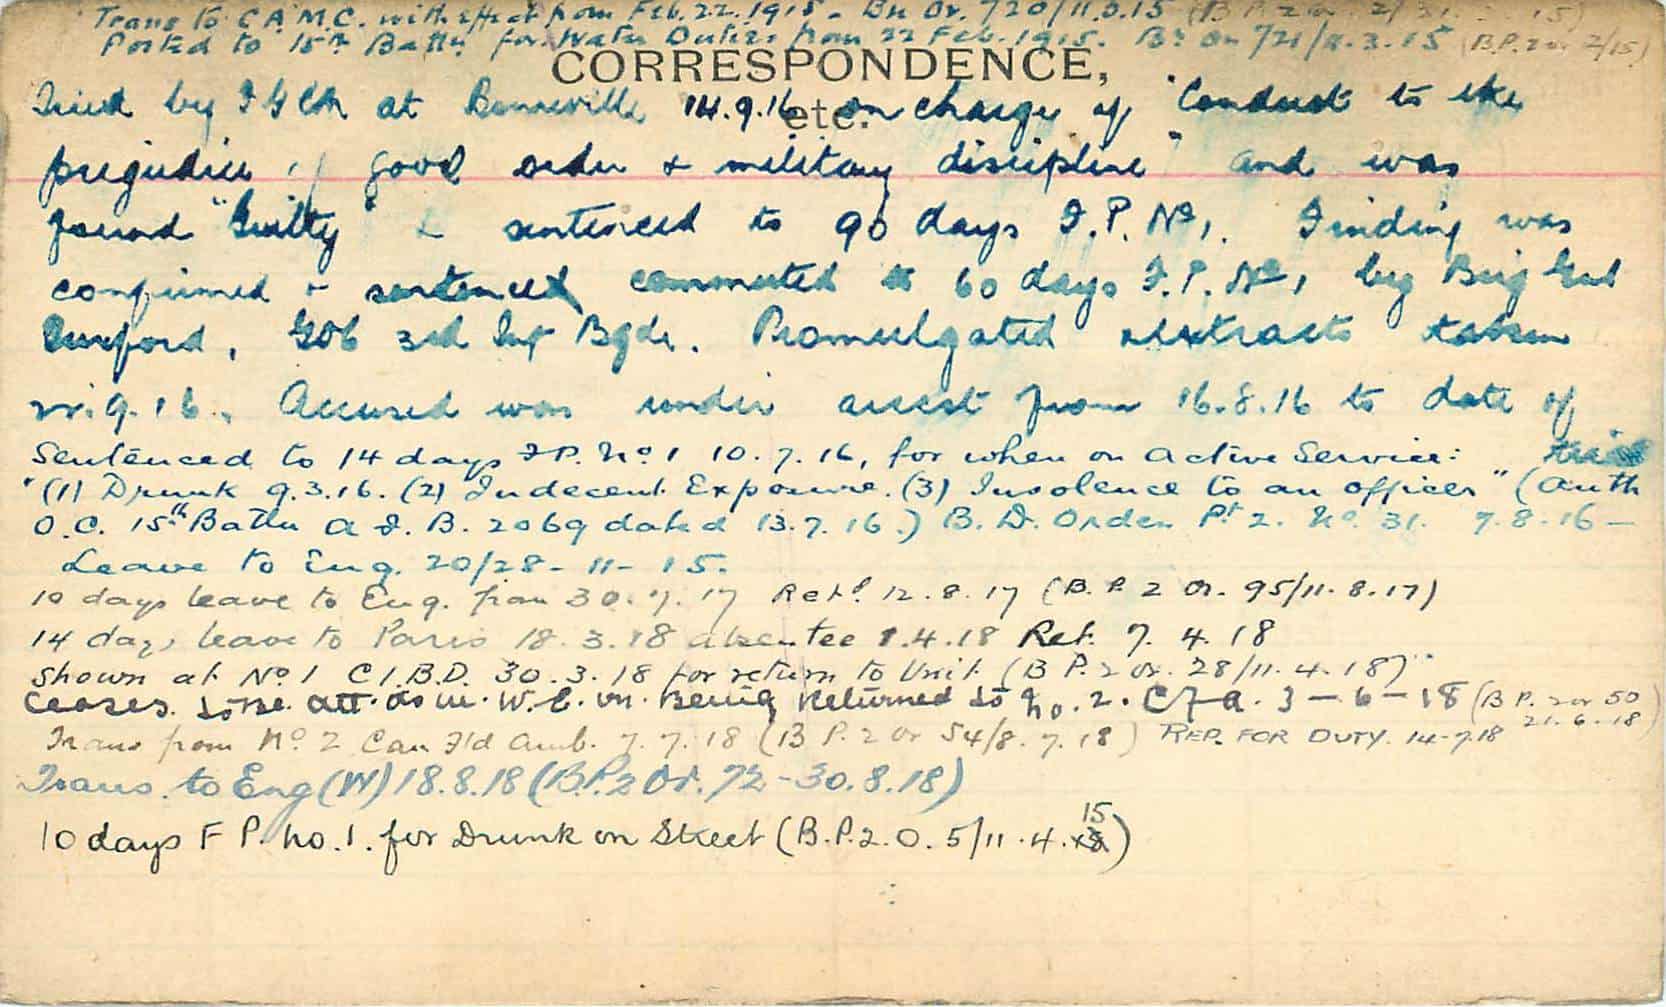 Trans to C.A.M.C. with effect from Feb. 22. 1915 - Bn Or. 720/11.3.15 (B.P.2 or 2/31. 15)
Posted to 15th Battn for Water Duties from 22 Feb. 1915. Bn Or 721/11.3.15 (B.P.2 or 2/15)
CORRESPONDENCE,
etc.
Tried by FGCM at Bonneville 14.9.16 on charge of "Conduct to the
prejudice of good order & military discipline" and was
found "Guilty" & sentenced to 90 days F.P. No 1. Finding was
confirmed & sentenced commuted to 60 days F.P. No 1 by Brig Genl
GOC 3rd Inf Bgde. Promulgated extracts taken
9.16. Accused was under arrest from 16.8.16 to date of
trial
Sentenced to 14 days F.P. No 1 10.7.16, for when on Active Service:
"(1) Drunk 9.3.16. (2) Indecent Exposure. (3) Insolence to an officer" (Auth
O.C. 15th Battn A.F.B. 2069 dated 13.7.16.) B.D. Order Pt 2. No. 31. 7.8.16 -
Leave to Eng. 20/28-11-15.
10 days leave to Eng. from 30.7.17 Retd 12.8.17 (B.P.2 Or. 95/11.8.17)
14 days leave to Paris 18.3.18 absentee 1.4.18 Ret. 7.4.18
Shown at No 1 C.I.B.D. 30.3.18 for return to Unit (B.P.2 or. 28/11.4.18)
Ceases to be att. as W.E. on being returned to No. 2. C.F.A. 3-6-18 (B.P. 2 or 50
21.6.18)
Trans from No. 2 Can F'd Amb. 7.7.18 (B.P.2 or 54/8.7.18) REP. FOR DUTY. 14-7.18
Trans. to Eng (W) 18.8.18 (B.P.2 Or. 72-30.8.18)
10 days F.P. No. 1. for Drunk on Street (B.P.2.O. 5/11.4.15)